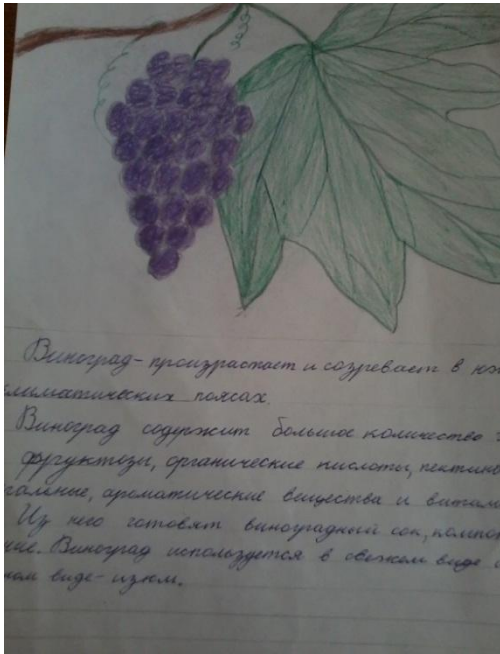 Виноград - произрастает и созревает в юж
лиматических поясах.
Виноград содержит большое количество г
фруктозы, органические кислоты, пектино
альные, ароматические вещества и витам
Из него готовят виноградный сок, компот
ние. Виноград используется в свежем виде и
ном виде - изюм.